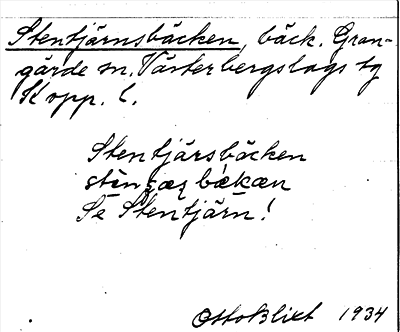 Stentjärnsbäcken, bäck. Gran-
gärde sn. Västerbergslags tg
Kopp. l.
Stentjärsbäcken
bækæn
Se Stentjärn!
Otto Blixt 1934